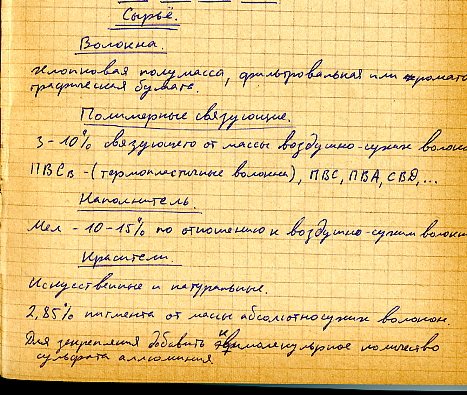 Сырьё.
Волокна.
Хлопковая полумасса, фильтровальная или хромато
графическая бумага.
Полимерные связующие.
3-10% связующего от массы воздушно-сухих волокн
ПВСв - (термопластичные волокна), ПВС, ПВА, СВД, ...
Наполнитель.
Мел - 10-15% по отношению к воздушно-сухим волокн
Красители.
Искусственные и натуральные.
2,85% пигмента от массы абсолютносухих волокон.
Для закрепления добавить эквимолекулярное количество
сульфата аллюминия.